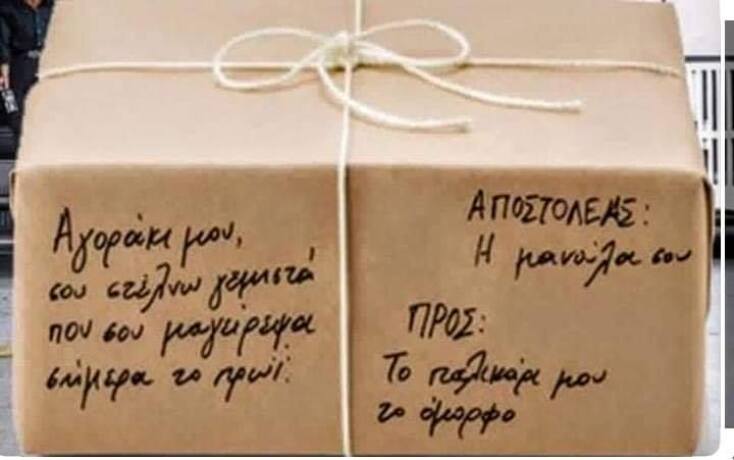 Αγοράκι μου,
σου στέλνω γεμιστά
που σου μαγείρεψα
σήμερα το πρωϊ.
ΑΠΟΣΤΟΛΕΑΣ:
Η μανούλα σου
ΠΡΟΣ:
Το παλικάρι μου
το όμορφο